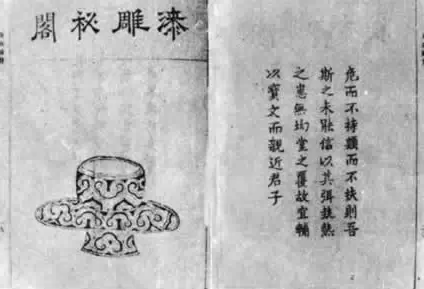 漆雕祕閣
危而不持顛而不扶則吾
斯之未能信以其弭執熱
之患無坳堂之覆故宜輔
以寳文而親近君子